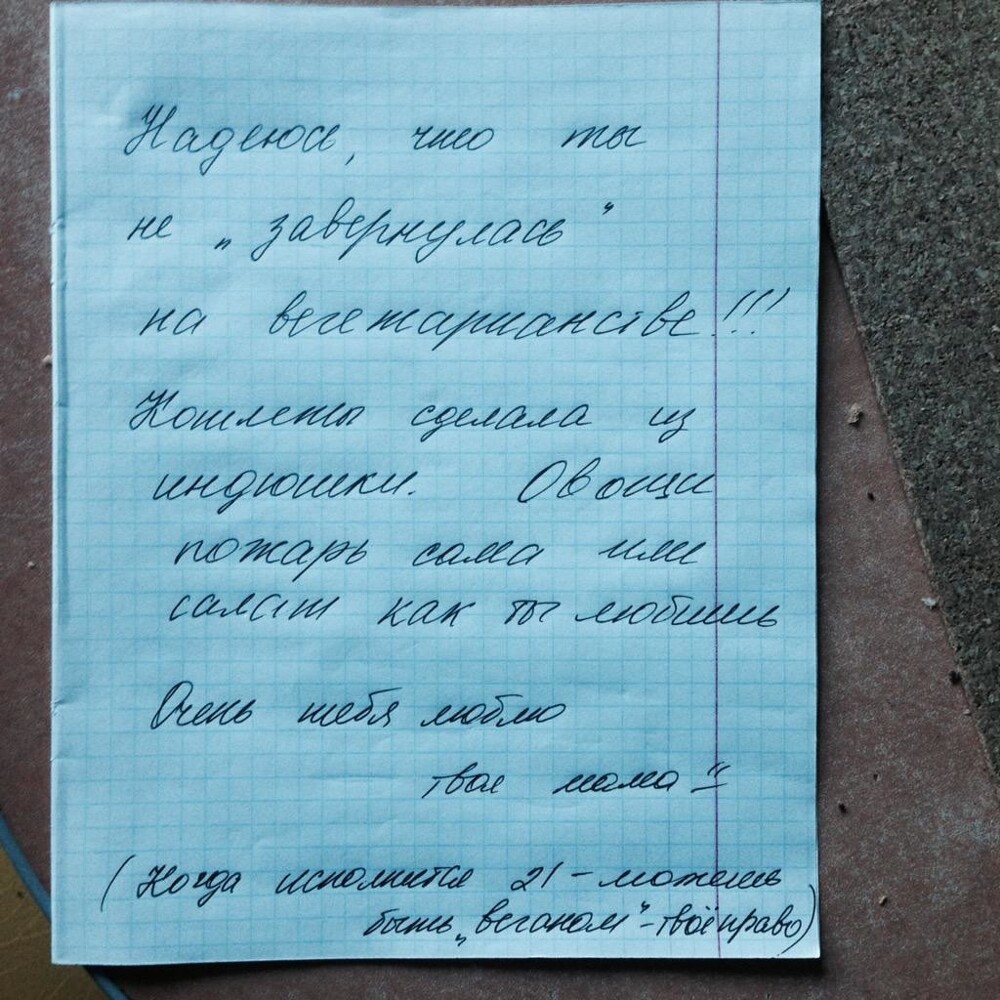 Надеюсь, что ты
не „завернулась“
на вегетарианстве!!!
Котлеты сделала из
индюшки. Овощи
пожарь сама или
салат как ты любишь
Очень тебя люблю
твоя мама!!
(Когда исполнится 21 – можешь
быть „веганом“ – твоё право)